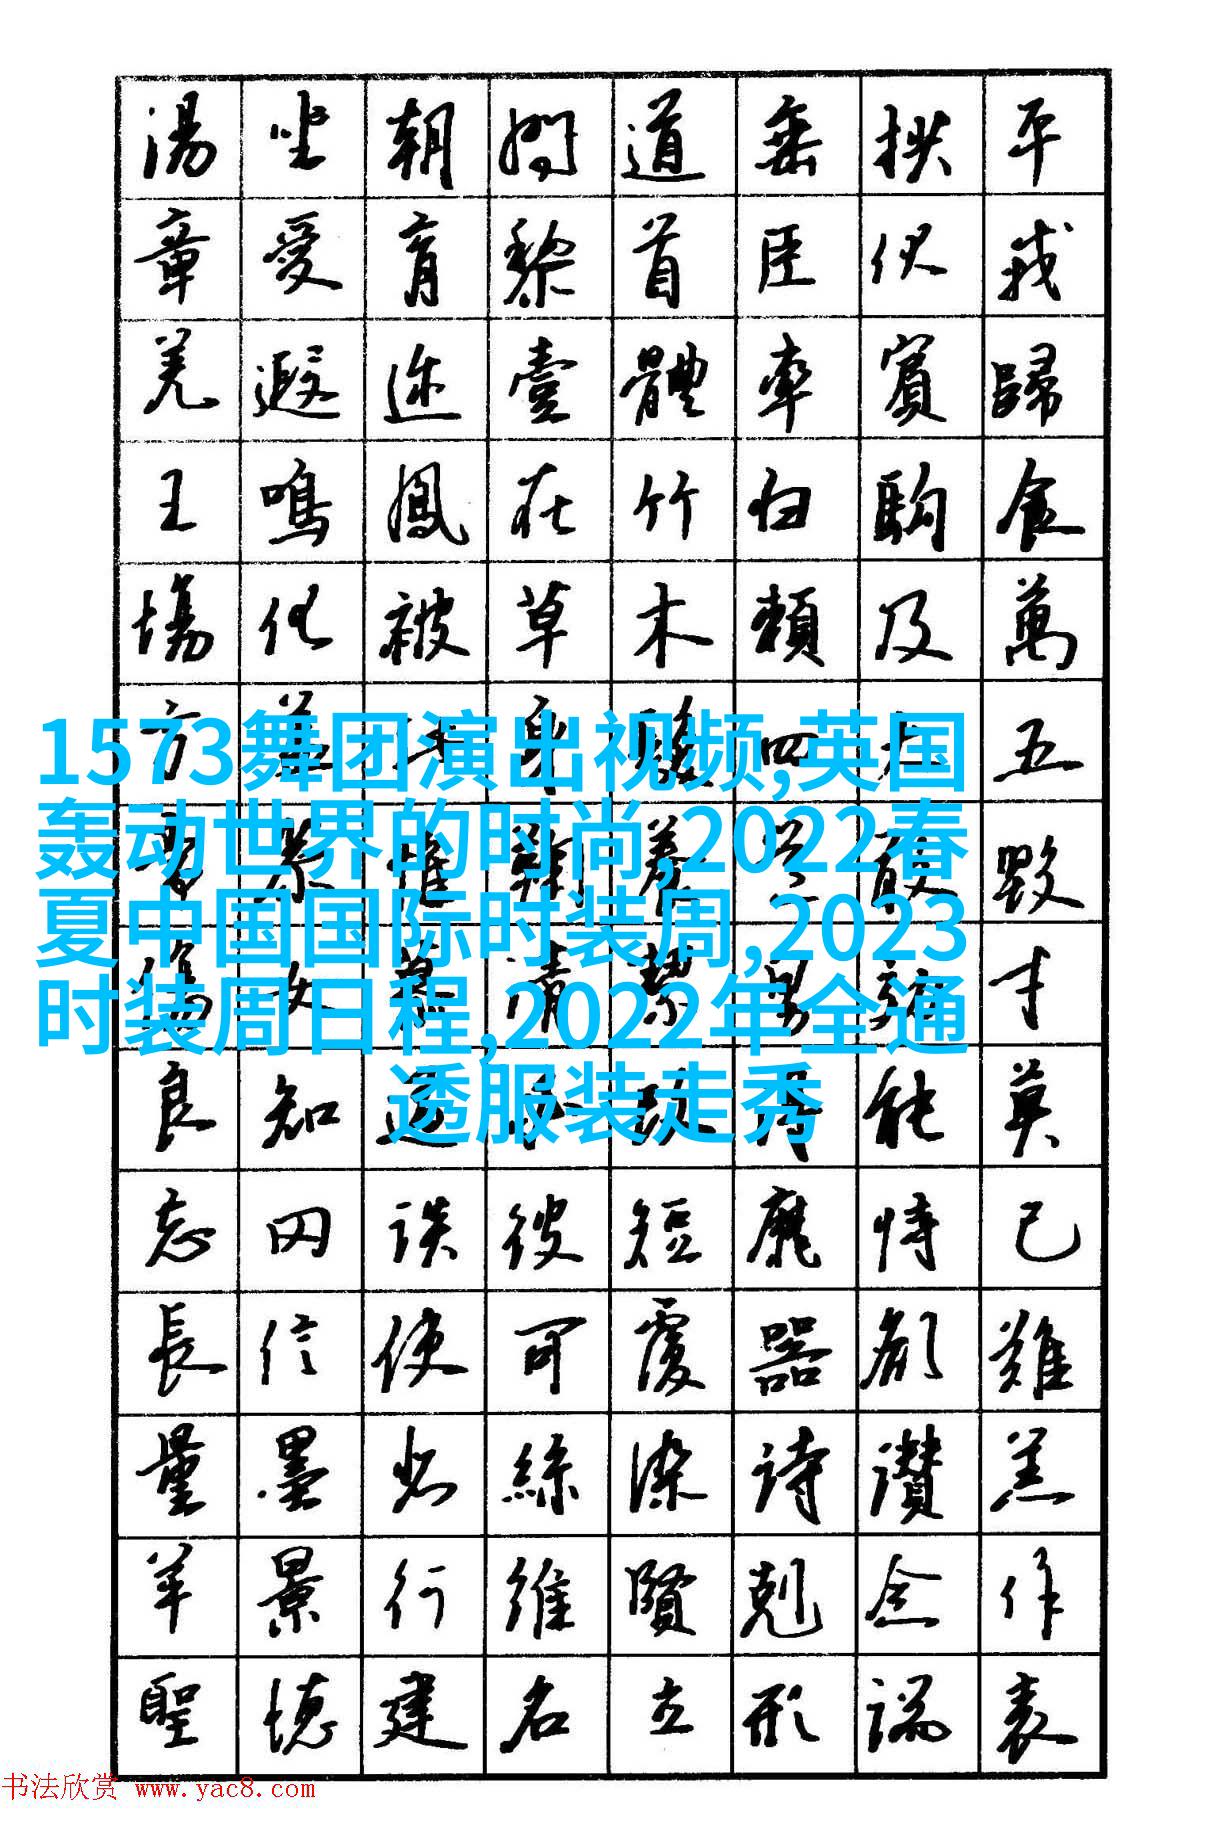 湯坐朝問道垂拱平
章愛育黎首臣伏戎
羌遐迩壹體率賓歸
王鳴鳳在竹白駒食
場化被草木賴及萬
方
五
1573舞团演出视频,英国
轰动世界的时尚,2022春
夏中国国际时装周,2023
时装周日程,2022年全通
透服装走秀
毀
才
良知過必改得能莫
忘罔談彼短靡恃己
長信使可覆器欲難
量墨悲絲染詩讚羔
羊景行維賢剋念作
聖德建名立形端表
书法欣赏 www.yac8.com